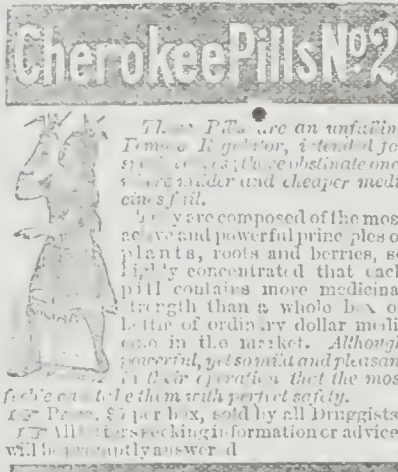 Cherokee Pills No. 2
Pills are an unfailin
Female
obstinate one
milder and cheaper medi
cines fail.
They are composed of the mos
active and powerful principles o
plants, roots and berries, so
highly concentrated that each
pill contains more medicina
strength than a whole box o
bottle of ordinary dollar medi
cine in the market. Although
powerful, yet so mild and pleasan
in their operation that the most
feeble can take them with perfect safety.
☞ Price, $5 per box, sold by all Druggists
☞ All seeking information or advice
will be promptly answered